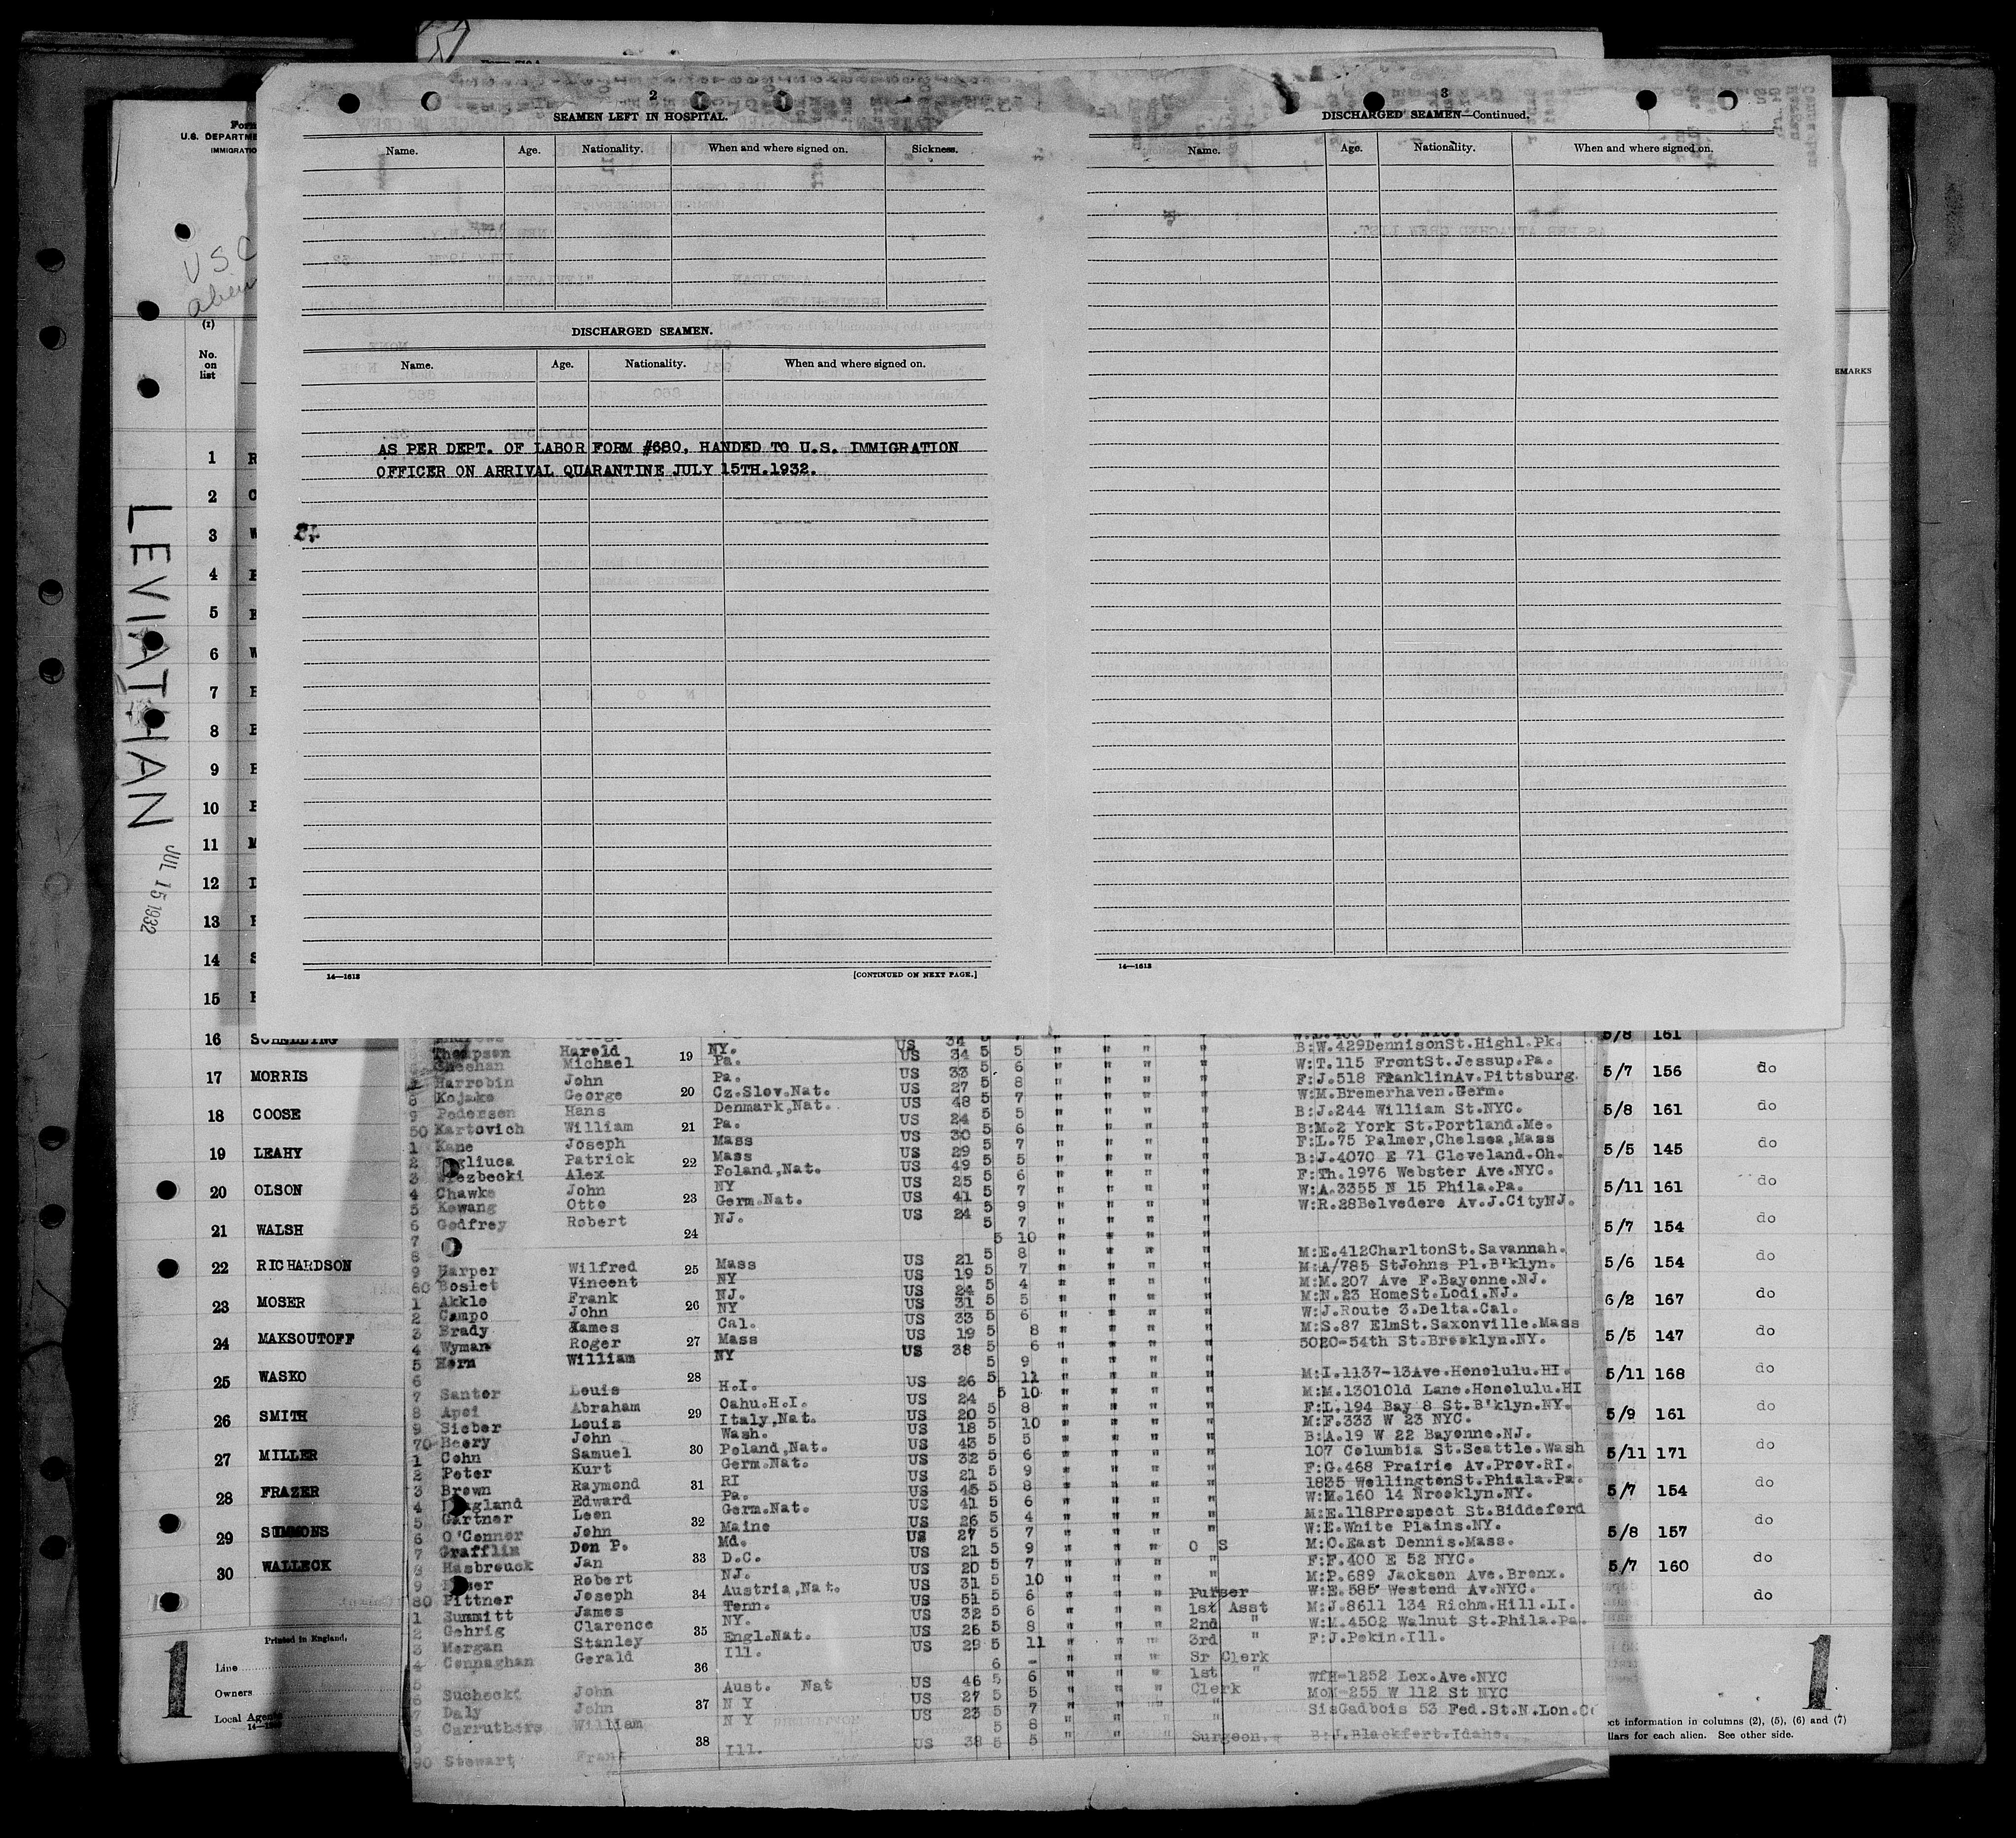 2
SEAMEN LEFT IN HOSPITAL.
Name. Age. Nationality. When and where signed on. Sickness.
DISCHARGED SEAMEN.
Name. Age. Nationality. When and where signed on.
AS PER DEPT. OF LABOR FORM #680, HANDED TO U.S. IMMIGRATION
OFFICER ON ARRIVAL QUARANTINE JULY 15TH.1932.
14—1613 [CONTINUED ON NEXT PAGE.]
3
DISCHARGED SEAMEN—Continued.
Name. Age. Nationality. When and where signed on.
14—1613
U.S. DEPARTM
IMMIGRATIO
USC
alien
(1)
No.
on
list
EMARKS
LEVIATHAN
JUL 15 1932
1
2
3
4
5
6
7
8
9
10
11
12
13
14
15
16 SCHNEIDING 5/8 161
17 MORRIS 5/7 156 do
18 COOSE 5/8 161 do
19 LEAHY 5/5 145 do
20 OLSON 5/11 161 do
21 WALSH 5/7 154 do
22 RICHARDSON 5/6 154 do
23 MOSER 6/2 167 do
24 MAKSOUTOFF 5/5 147 do
25 WASKO 5/11 168 do
26 SMITH 5/9 161 do
27 MILLER 5/11 171 do
28 FRAZER 5/7 154 do
29 SIMMONS 5/8 157 do
30 WALLECK 5/7 160 do
do
Thompson Harold NY. US 34 5 5 B:W.429DennisonSt.Highl.Pk.
Sheehan Michael Pa. US 33 5 6 W:T.115 FrontSt.Jessup.Pa.
Harrobin John Pa. US 27 5 8 F:J.518 FranklinAv.Pittsburg.
8 Kojake George Cz.Slov.Nat. US 48 5 7 W:M.Bremerhaven.Germ.
9 Pedersen Hans Denmark,Nat. US 24 5 5 B:J.244 William St.NYC.
50 Kartovich William Pa. US 30 5 6 B:M.2 York St.Portland.Me.
1 Kane Joseph Mass US 29 5 7 F:L.75 Palmer,Chelsea,Mass
2 Patrick Mass US 49 5 5 B:J.4070 E 71 Cleveland.Oh.
3 Wiezbecki Alex Poland,Nat. US 25 5 6 F:Th.1976 Webster Ave.NYC.
4 Chawke John NY US 41 5 7 W:A.3355 N 15 Phila.Pa.
5 Kewang Otto Germ.Nat. US 24 5 9 W:R.28Belvedere Av.J.CityNJ.
6 Godfrey Robert NJ. 5 7
7 5 10
8 US 21 5 8 M:E.412CharltonSt.Savannah.
9 Harper Wilfred Mass US 19 5 7 M:A/785 StJohns Pl.B'klyn.
60 Boslet Vincent NY US 24 5 4 M:M.207 Ave F.Bayonne.NJ.
1 Akkle Frank NJ. US 31 5 5 M:N.23 HomeSt.Lodi.NJ.
2 Campo John NY US 33 5 6 W:J.Route 3.Delta.Cal.
3 Brady James Cal. US 19 5 8 M:S.87 ElmSt.Saxonville.Mass
4 Wyman Roger Mass US 38 6 5020-54th St.Brooklyn.NY.
5 Horn William NY 5 9
6 US 26 5 11 M:I.1137-13Ave.Honolulu.HI.
7 Santor Louis H.I. US 24 5 10 M:M.1301Old Lane.Honolulu.HI
8 Apoi Abraham Oahu.H.I. US 20 5 8 F:L.194 Bay 8 St.B'klyn.NY.
9 Sieber Louis Italy,Nat. US 18 5 10 M:F.333 W 23 NYC.
70 Beery John Wash. US 43 5 5 B:A.19 W 22 Bayonne.NJ.
1 Cohn Samuel Poland,Nat. US 32 5 6 107 Columbia St.Seattle.Wash
2 Peter Kurt Germ.Nat. US 21 5 9 F:G.468 Prairie Av.Prov.RI.
3 Brown Raymond RI US 45 5 8 1835 WellingtonSt.Phiala.Pa.
4 Edward Pa. US 41 5 6 W:M.160 14 Nrooklyn.NY.
5 Gartner Leon Germ.Nat. US 26 5 4 M:E.118Prospect St.Biddeford
6 O'Conner John Maine US 27 5 7 W:E.White Plains.NY.
7 Grafflin Don P. Md. US 21 5 9 O S M:O.East Dennis.Mass.
8 Hasbrouck Jan D.C. US 20 5 7 F:F.400 E 52 NYC.
9 Robert NJ. US 31 5 10 M:P.689 Jackson Ave.Bronx.
80 Pittner Joseph Austria,Nat. US 51 5 6 Purser W:E.585 Westend Av.NYC.
1 Summitt James Tenn. US 32 5 6 1st Asst M:J.8611 134 Richm.Hill.LI.
2 Gehrig Clarence NY. US 26 5 8 2nd " W:M.4502 Walnut St.Phila.Pa.
3 Morgan Stanley Engl.Nat. US 29 5 11 3rd " F:J.Pekin.Ill.
4 Connaghan Gerald Ill. 6 - Sr Clerk
5 US 46 5 6 1st " WfH-1252 Lex.Ave.NYC
6 Suchecki John Aust. Nat US 27 5 5 Clerk MoM-255 W 112 St NYC
7 Daly John N Y US 23 5 7 " SisGadbois 53 Fed.St.N.Lon.C
8 Carruthers William N Y 5 8
9 US 38 5 5 Surgeon. B:J.Blackfort.Idaho.
90 Stewart Frank Ill.
19
20
21
22
23
24
25
26
27
28
29
30
31
32
33
34
35
36
37
38
1
Printed in England.
Line
Owners
Local Agents
1
ect information in columns (2), (5), (6) and (7)
llars for each alien. See other side.